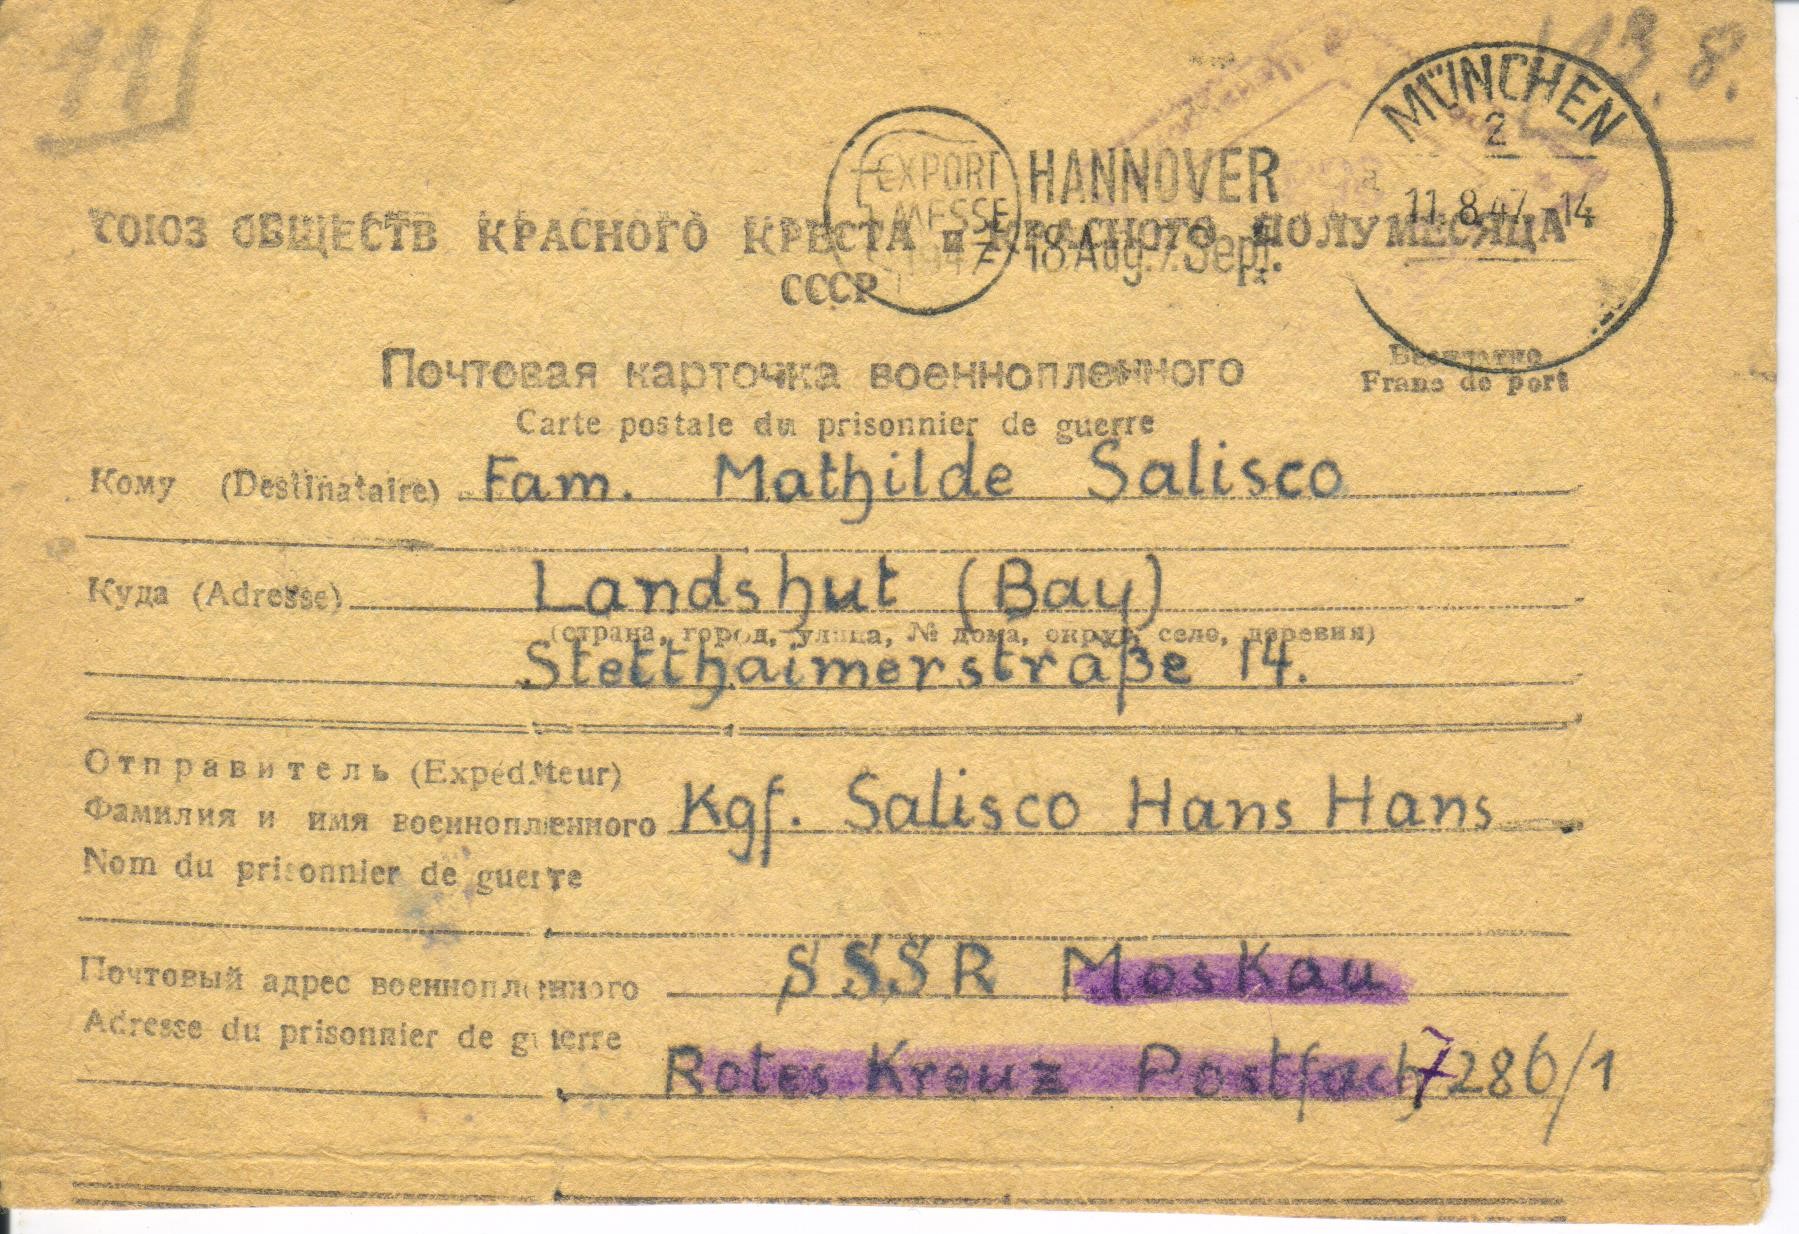 11
13.8.
MÜNCHEN
2
a 11.8.47.-14
EXPORT
MESSE
1947
HANNOVER
18.Aug.-7.Sept.
СОЮЗ ОБЩЕСТВ КРАСНОГО КРЕСТА и КРАСНОГО ПОЛУМЕСЯЦА
СССР
Почтовая карточка военнопленного
Carte postale du prisonnier de guerre
Бесплатно
Franc de port
Кому (Destinataire) Fam. Mathilde Salisco
Куда (Adresse) Landshut (Bay)
(страна, город, улица, № дома, округ, село, деревня)
Stetthaimerstraße 14.
Отправитель (Expéditeur)
Фамилия и имя военнопленного Kgf. Salisco Hans Hans
Nom du prisonnier de guerre
Почтовый адрес военнопленного SSSR Moskau
Adresse du prisonnier de guerre
Rotes Kreuz Postfach 7286/1